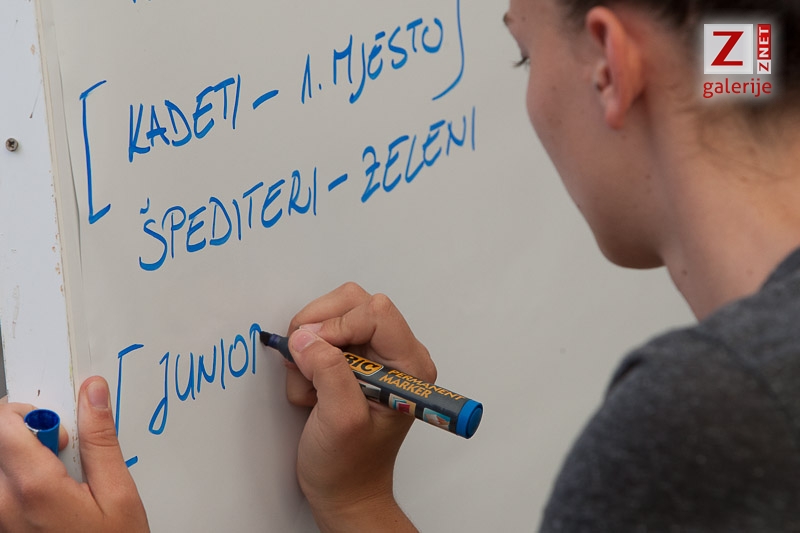 [KADETI - 1. MJESTO]
ŠPEDITERI - ZELENI
[JUNIO
BIC
PERMANENT
MARKER
Z
ZNET
galerije